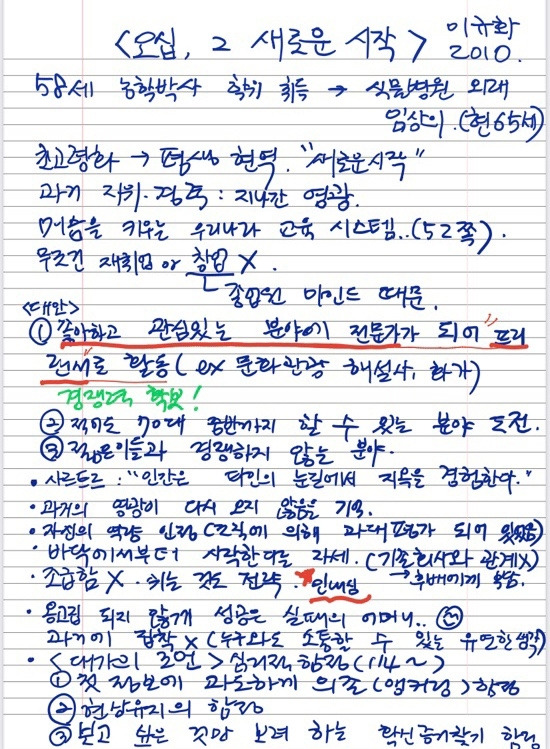 <오십, 2 새로운 시작> 이규화
2010.
58세 농학박사 학위 취득 → 식물병원 외래
임상의.(현65세)
초고령화 → 평생 현역. "새로운시작"
과거 지위·경력 : 지나간 영광.
머슴을 키우는 우리나라 교육 시스템..(52쪽).
무조건 재취업 or 창업 X.
종업원 마인드 때문.
<대안>
① 좋아하고 관심있는 분야에 전문가가 되어 "프리
랜서"로 활동(ex 문화관광 해설사, 화가)
경쟁력 확보!
② 적어도 70대 중반까지 할 수 있는 분야 도전.
③ 젊은이들과 경쟁하지 않는 분야.
• 사르트르 : "인간은 타인의 눈길에서 지옥을 경험한다."
• 과거의 영광이 다시 오지 않음을 기억.
• 자신의 역량 인정 (조직에 의해 과대평가 되어 있었음)
• 바닥에서부터 시작한다는 자세. (기존회사와 관계X)
• 조급함 X. 쉬는 것도 전략 ★인내심 → 후배에게 부담.
• 용고립 되지 않게 성공은 실패의 어머니..
과거에 집착 X (누구와도 소통할 수 있는 유연한 생각)
• <대가의 조언> 심리적 함정 (114~)
① 첫 정보에 과도하게 의존(앵커링) 함정
② 현상유지의 함정
③ 보고 싶은 것만 보려 하는 확신증거찾기 함정